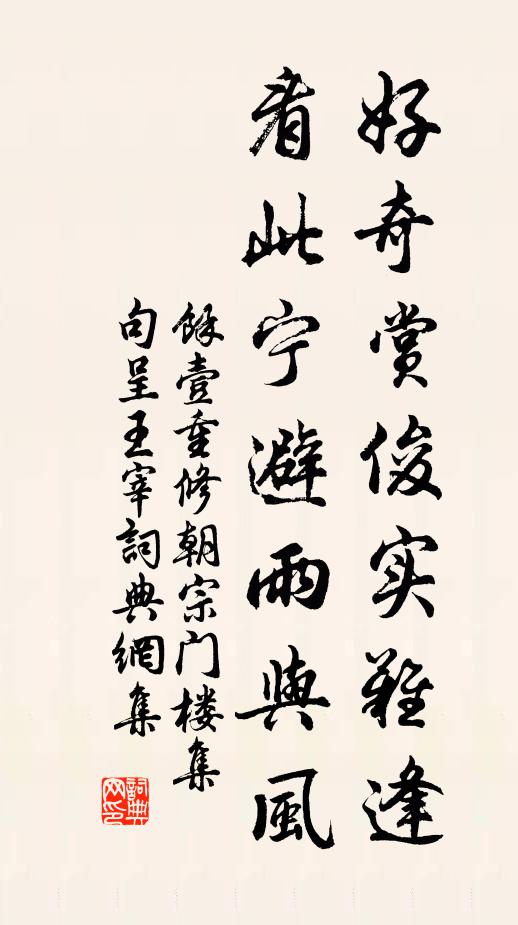 好奇赏俊实难逢
看此宁避雨與風
馀壹重修朝宗门楼集
句呈王宰詞典網集
詞典
网印